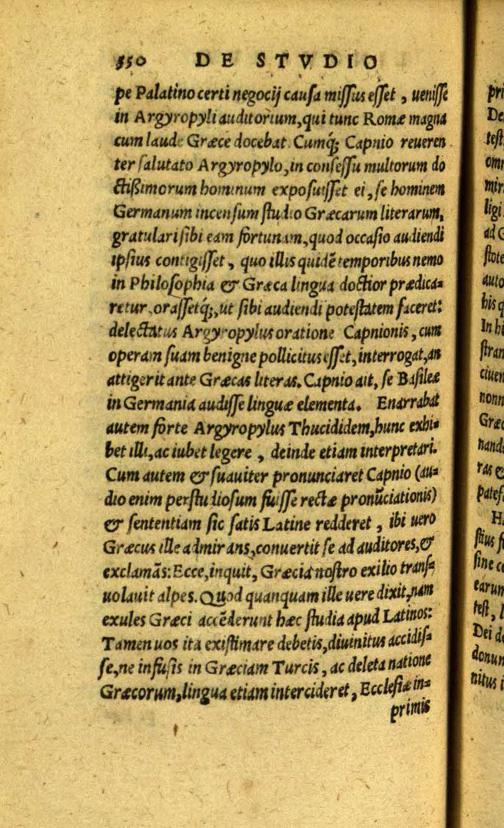 550 DE STVDIO
pe Palatino certi negocij cauſa miſſus eſſet, ueniſſe
in Argyropyli auditorium, qui tunc Romæ magna
cum laude Græce docebat. Cumq́; Capnio reueren
ter ſalutato Argyropylo, in conſeſſu multorum do
ctißimorum hominum expoſuiſſet ei, ſe hominem
Germanum incenſum ſtudio Græcarum literarum,
gratulari ſibi eam fortunam, quod occaſio audiendi
ipſius contigiſſet, quo illis quidẽ temporibus nemo
in Philoſophia & Græca lingua doctior prædica=
retur, oraſſetq́;, ut ſibi audiendi poteſtatem faceret:
delectatus Argyropylus oratione Capnionis, cum
operam ſuam benigne pollicitus eſſet, interrogat, an
attigerit ante Græcas literas. Capnio ait, ſe Baſileæ
in Germania audiſſe linguæ elementa. Enarrabat
autem forte Argyropylus Thucididem, hunc exhi=
bet illi, ac iubet legere, deinde etiam interpretari.
Cum autem & ſuauiter pronunciaret Capnio (au=
dio enim perſtudioſum fuiſſe rectæ pronũciationis)
& ſententiam ſic ſatis Latine redderet, ibi uero
Græcus ille admirans, conuertit ſe ad auditores, &
exclamãs: Ecce, inquit, Græcia noſtro exilio tranſ=
uolauit alpes. Quod quanquam ille uere dixit, nam
exules Græci accẽderunt hæc ſtudia apud Latinos:
Tamen uos ita exiſtimare debetis, diuinitus accidiſ=
ſe, ne infuſis in Græciam Turcis, ac deleta natione
Græcorum, lingua etiam intercideret, Eccleſiæ in=
primis
pri
De
teſt
omn
mir
ligi
ad G
ſtote
auto
his q
In h
ſtran
ciuem
nonn
Græc
nand
ras &
pateſ
H
ſtius f
ſine c
earum
teſt,
Dei d
donum
nitus i